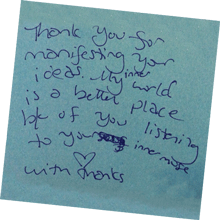 Thank you for
manifesting your
ideas. My inner world
is a better place
bc of you listening
to your inner muse
with thanks